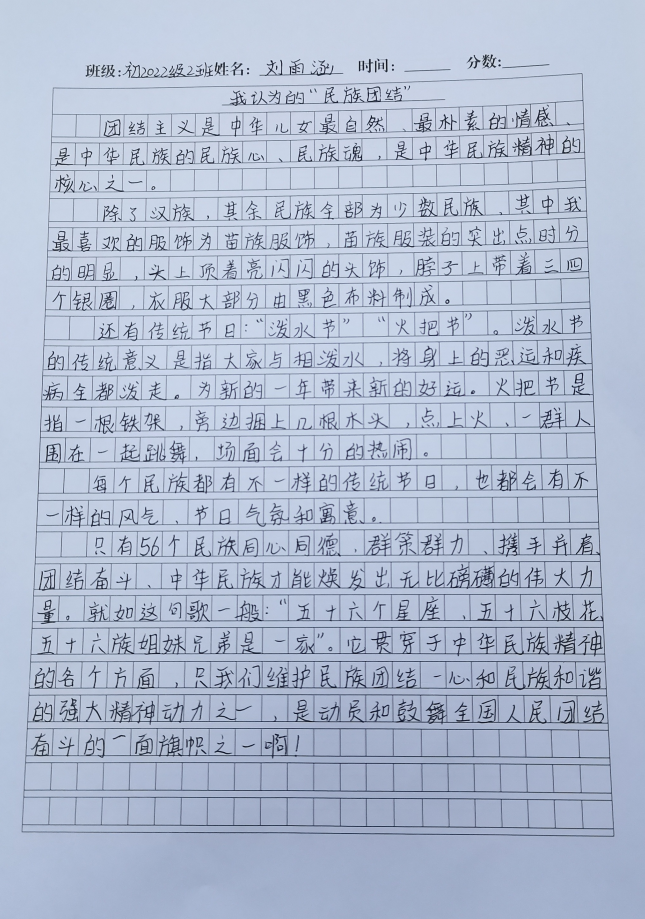 班级:初2022级2班姓名: 刘雨涵 时间: 分数:
我认为的“民族团结”
团结主义是中华儿女最自然、最朴素的情感、
是中华民族的民族心、民族魂，是中华民族精神的
核心之一。
除了汉族，其余民族全部为少数民族，其中我
最喜欢的服饰为苗族服饰，苗族服装的突出点时分
的明显，头上顶着亮闪闪的头饰，脖子上带着三四
个银圈，衣服大部分由黑色布料制成。
还有传统节日:“泼水节”“火把节”。泼水节
的传统意义是指大家与相泼水，将身上的恶运和疾
病全都泼走。为新的一年带来新的好运。火把节是
指一根铁架，旁边捆上几根木头，点上火、一群人
围在一起跳舞，场面会十分的热闹。
每个民族都有不一样的传统节日，也都会有不
一样的风气、节日气氛和寓意。
只有56个民族同心同德，群策群力、携手并肩、
团结奋斗、中华民族才能焕发出无比磅礴的伟大力
量。就如这句歌一般:“五十六个星座、五十六枝花、
五十六族姐妹兄弟是一家”。它贯穿于中华民族精神
的各个方面，只我们维护民族团结一心和民族和谐
的强大精神动力之一，是动员和鼓舞全国人民团结
奋斗的一面旗帜之一啊！